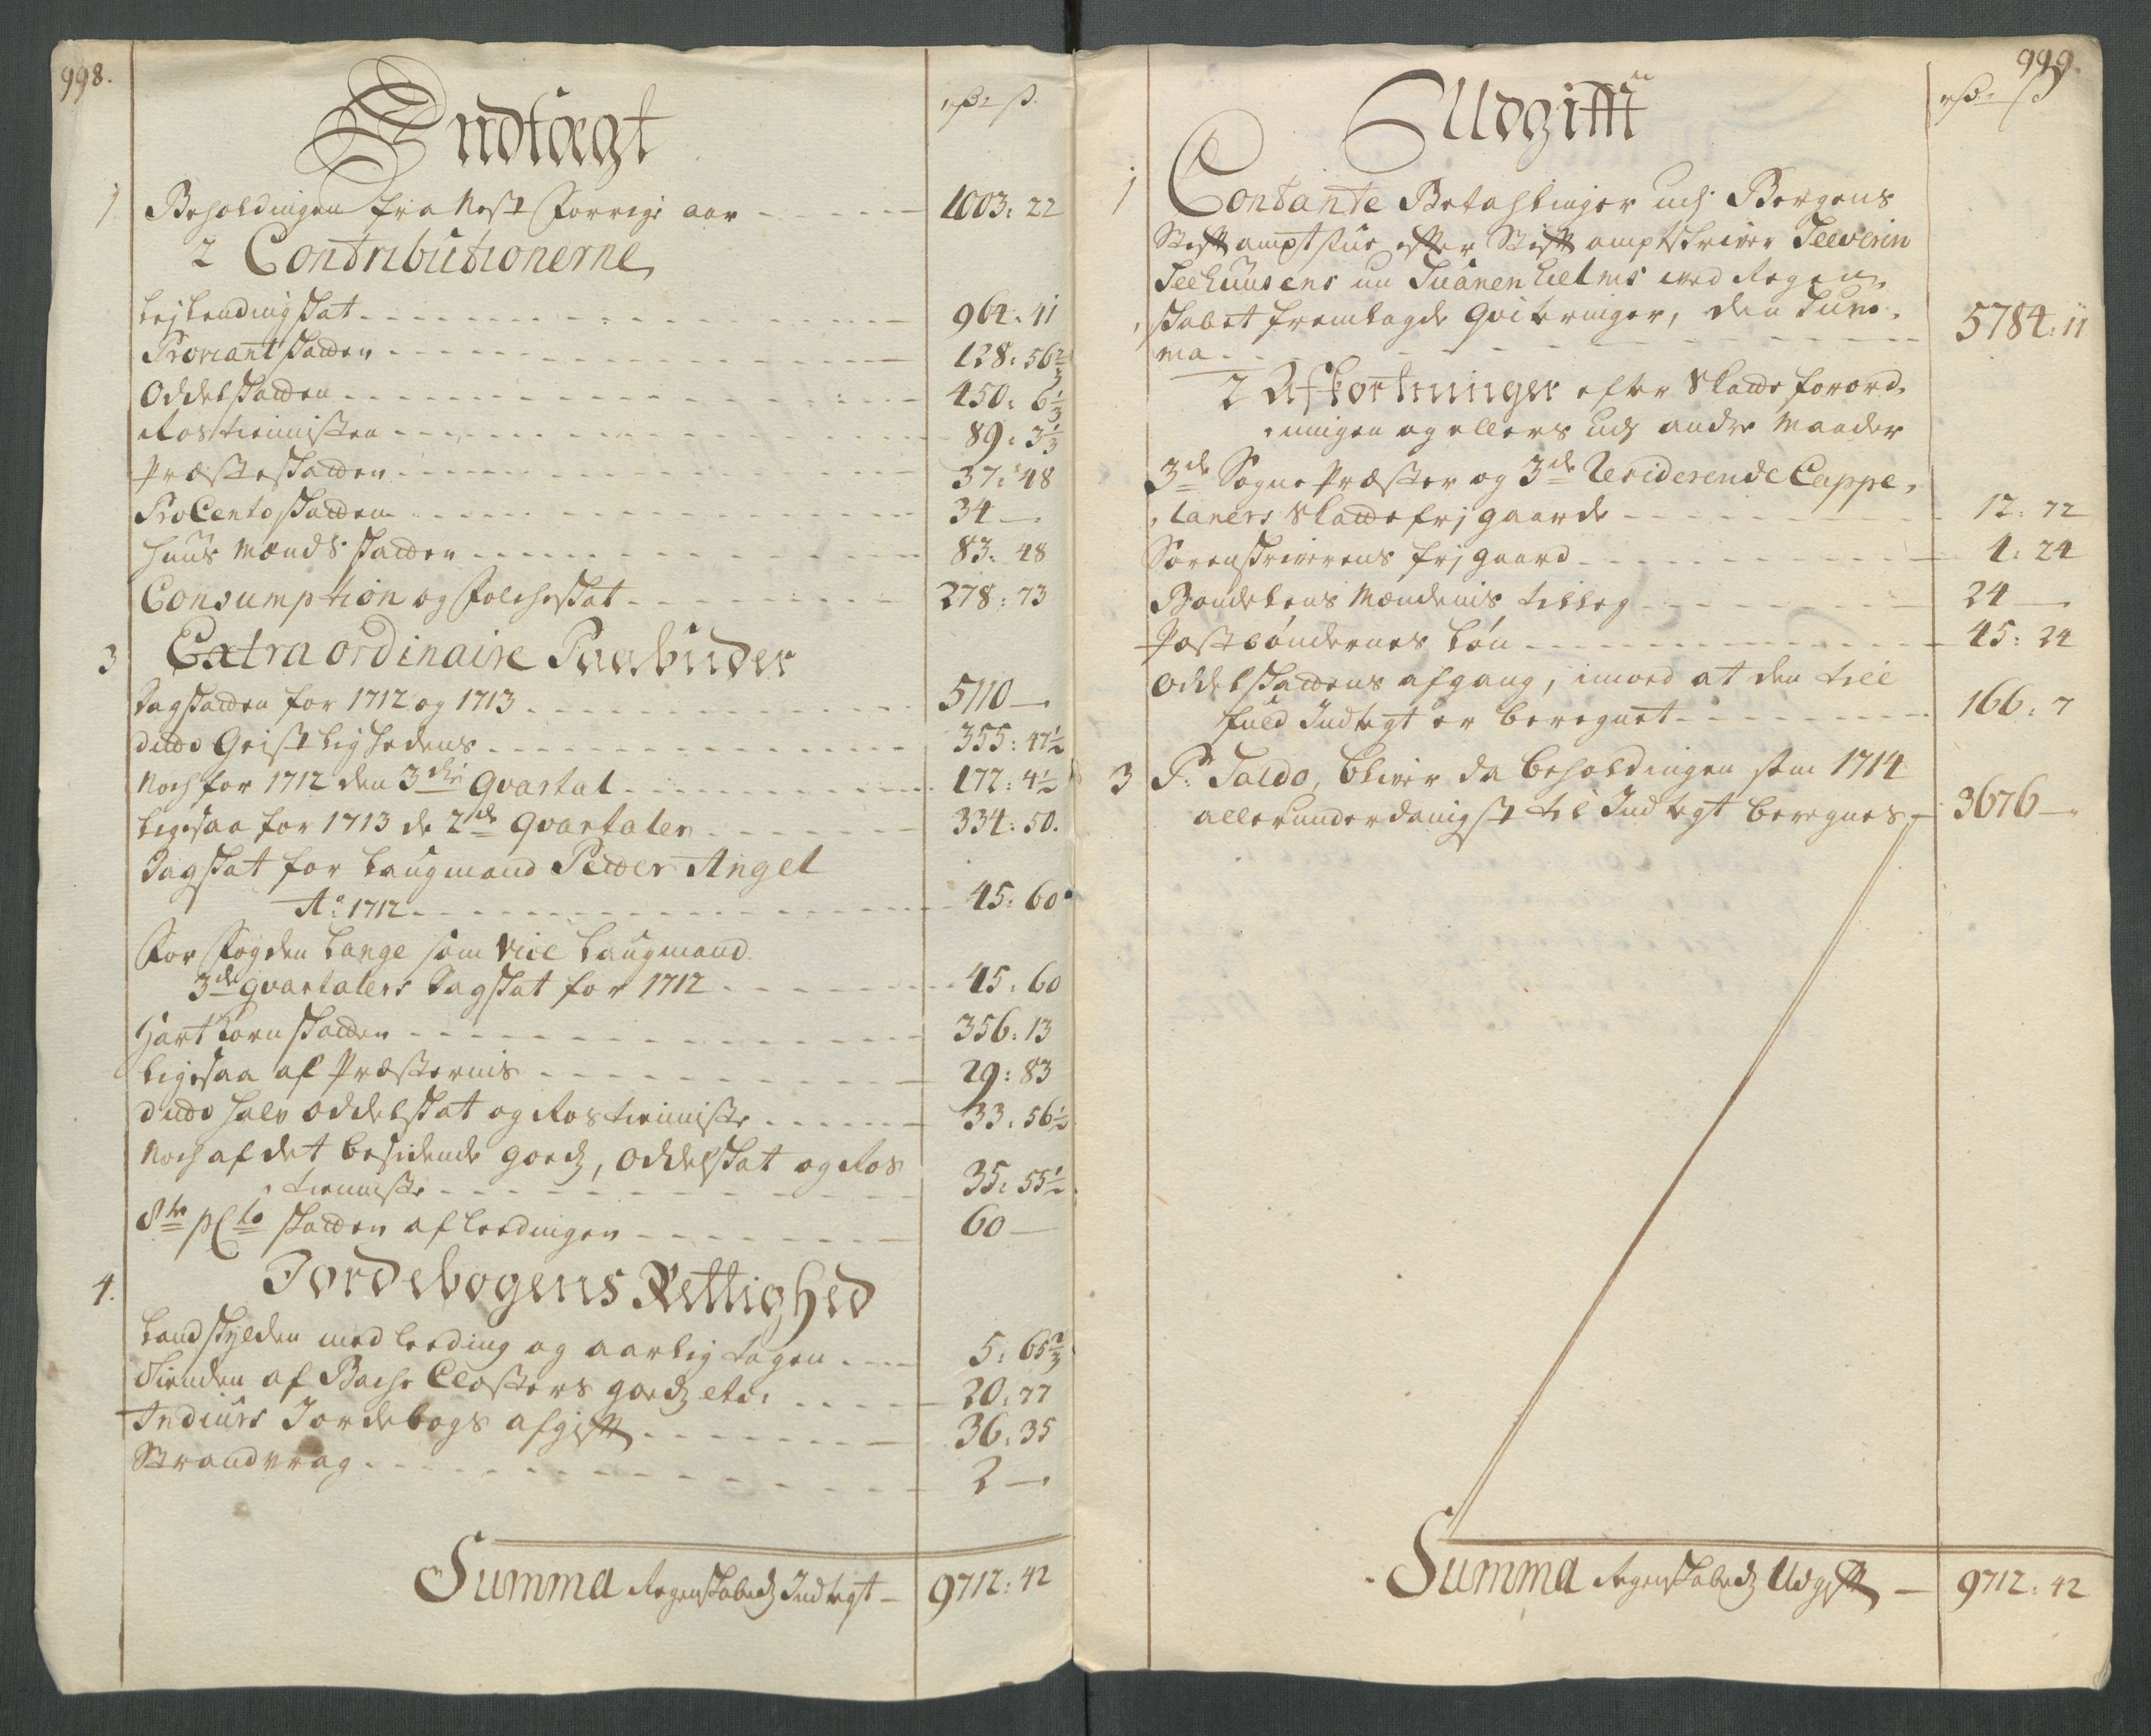 998.
Indtægt
rdr ß.
1 Beholdingen fra Nest Forrige aar 1003: 22
2 Contributionerne
Lejlendingskat 964: 41
Proviant skatten 128: 56 2/3
Oddelskatten 450: 6 1/3
Rostienisten 89: 3 1/3
Præsteskatten 37: 48
ProCento skatten 34 —
Huusmænds skatten 83: 48
Consumption og Folcheskat 278: 73
3 Extraordinaire Paabuder
Dagskatten for 1712 og 1713 5110 —
ditto Geistlighedens 355: 47 1/2
Noch for 1712 den 3die Qvartal 177: 4 1/2
Ligesaa for 1713 de 2de Qvartaler 334: 50.
Dagskat for Laugmand Peder Angel
Ao: 1712 45: 60
For Fogden Lange som Vice Laugmand
3de qvartalers Dagskat for 1712 45: 60
Hartkorn skatten 356: 13
Ligesaa af Præsternis 29: 83
ditto halv Oddelskat og Rostieniste 33: 56 1/2
Noch af det besidende goedz, Oddelskat og Ros
tieniste 35: 55 1/2
8te pCto skatten af Leedingen 60 —
4. Jordebogens Rettighed
Landskylden med Leeding og aarlig tagen 5: 65 2/3
Tienden af Bache Closters goedz etc: 20: 77
Indviirs Jordebogs afgifft 36: 35
Strandvrag 2 —
Summa Regenskabedz Indtegt — 9712: 42
999.
Udgifft
rdr ß
1 Contante Betahlinger udj Bergens
Stifftamptstue effter Stifftamptskriver Severin
Seehuusens nu Svanenhielms ved Regen,
skabet fremlagde Qviteringer, den Sum,
ma 5784: 11
2 Afkortninger efter Skatteforord,
ningen og ellers udj andre Maader
3de Sogne Præster og 3de Residerende Cappe,
laners Skattefrj gaarde 12: 72
Sorenskriverens frj gaard 4: 24
Bonde Lens Mændenis tilleg 24 —
Postbøndernes Løn 45: 24
Oddelskattens afgang, imod at den till
fuld Indtegt er beregnet 166: 7
3 Pr: Saldo, bliver da beholdingen som 1714
allerunderdanigst til Indtegt beregnes — 3676 —
Summa Regenskabedz Udgifft — 9712: 42